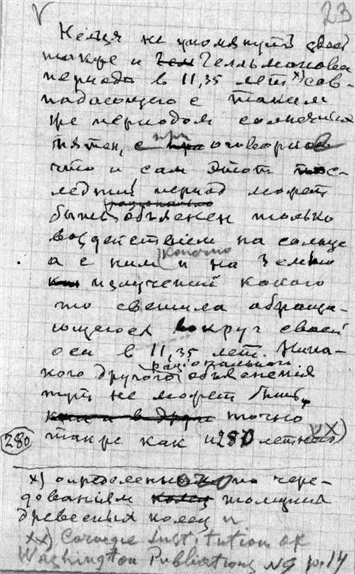 23
Нельзя не упомянуть здесь
также и Гелльмановa
периода в 11,35 лет x) сов-
падающего с таким
же периодом солнечных
пятен, при оговорке
что и сам этот пос-
ледний период может
быть рационально объяснен только
воздействием на солнце
а с ним конечно и на Землю
излучений какого
то светила обраща-
ющегося вокруг своей
оси в 11,35 лет. Ника-
кого другого рационального объяснения
тут не может быть,
точно
280 также как и 280 летнего xx)
x) определенного по чере-
дованиям толщины
древесных колец и
xx) Carnegie Institution of
Washington Publications No p. 14